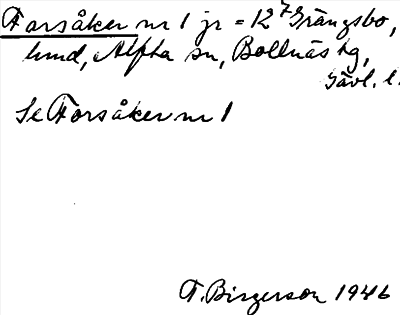 Forsåker nr 1 jr = 12⁷ Grängsbo,
lund, Alfta sn, Bollnäs tg,
Gävl. l.
Se Forsåker nr 1
T. Birgerson 1946